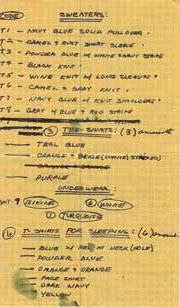 CODE SWEATERS:
T1 - NAVY BLUE SOLID PULLOVER
T2 - CAMEL & RUST SHORT SLEEVE
T3 - POWDER BLUE W/ WHITE & NAVY STRIPE
T4 - BLACK KNIT
T5 - WINE KNIT W/ LONG SLEEVES
T6 - CAMEL & GRAY KNIT
T7 - NAVY BLUE W/ KNIT
T8 - GRAY W/ BLUE & RED STRIPE
(3) TEE-SHIRTS: (3)
- TEAL BLUE
- ORANGE & BEIGE (WHITE) STRIPES
- PURPLE
UNDERWEAR:
9 BIKINI 6 WHITE
1 TURQUOISE
(6) T SHIRTS FOR SLEEPING: (6)
- BLUE W/ RED AT NECK (HOLE)
- POWDER BLUE
- ORANGE & ORANGE
- SHIRT
- DARK NAVY
- YELLOW